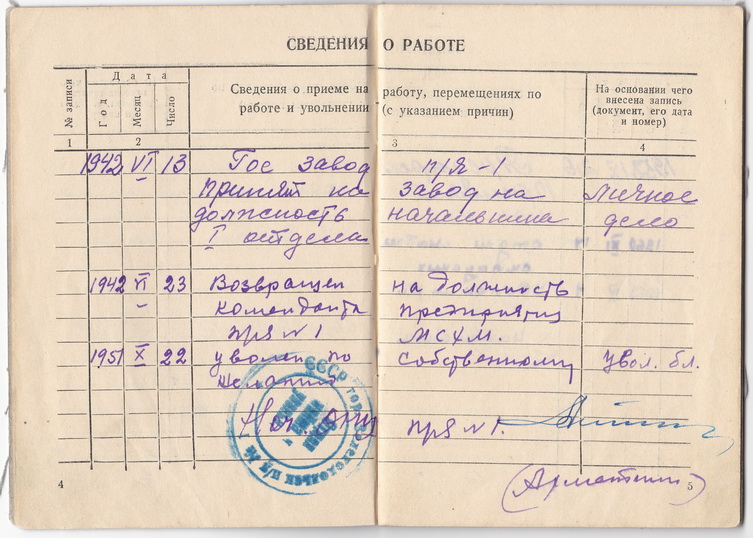 СВЕДЕНИЯ О РАБОТЕ
№ записи
Дата
Год
Месяц
Число
Сведения о приеме на работу, перемещениях по
работе и увольнении (с указанием причин)
На основании чего
внесена запись
(документ, его дата
и номер)
1 2 3 4
1942 VI 13 Гос завод п/я-1
принят на завод на личное
должность начальника дело
I отдела
1942 VI 23 Возвращен на должность
коменданта предприятия
п/я N 1 МСХМ.
1951 X 22 уволен по собственному увол. бл.
желанию
Нач. п/я N 1.
СССР
4
5